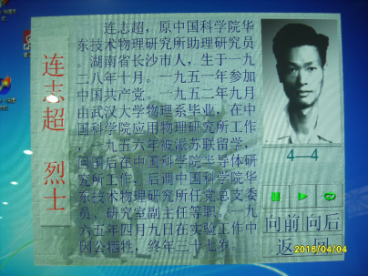 连志超 烈士
连志超，原中国科学院华
东技术物理研究所助理研究员
。湖南省长沙市人，生于一九
二八年十月。一九五一年参加
中国共产党。一九五二年九月
由武汉大学物理系毕业，在中
国科学院应用物理研究所工作
。一九五六年被派苏联留学，
回国后在中国科学院半导体研
究所工作，后调中国科学院华
东技术物理研究所任党总支委
员，研究室副主任等职。一九
六五年四月九日在实验工作中
因公牺牲，终年三十七年。
4—4
向前 向后
返 回
2018/04/04